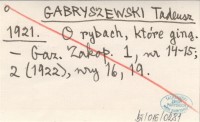 GABRYSZEWSKI Tadeusz
1921. O rybach, które giną.
- Gaz. Zakop. 1, nr 14-15;
2 (1922), nry 16, 19.